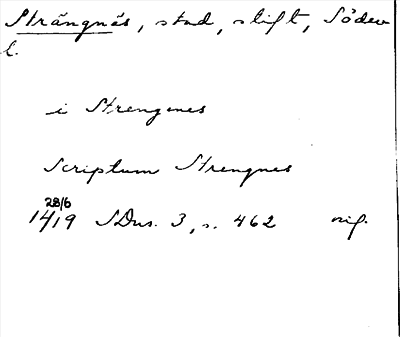 Strängnäs, stad, stift, Söderm
l.
i Strengenes
Scriptum Strengnes
28/6
1419 SDns. 3, s. 462 orig.